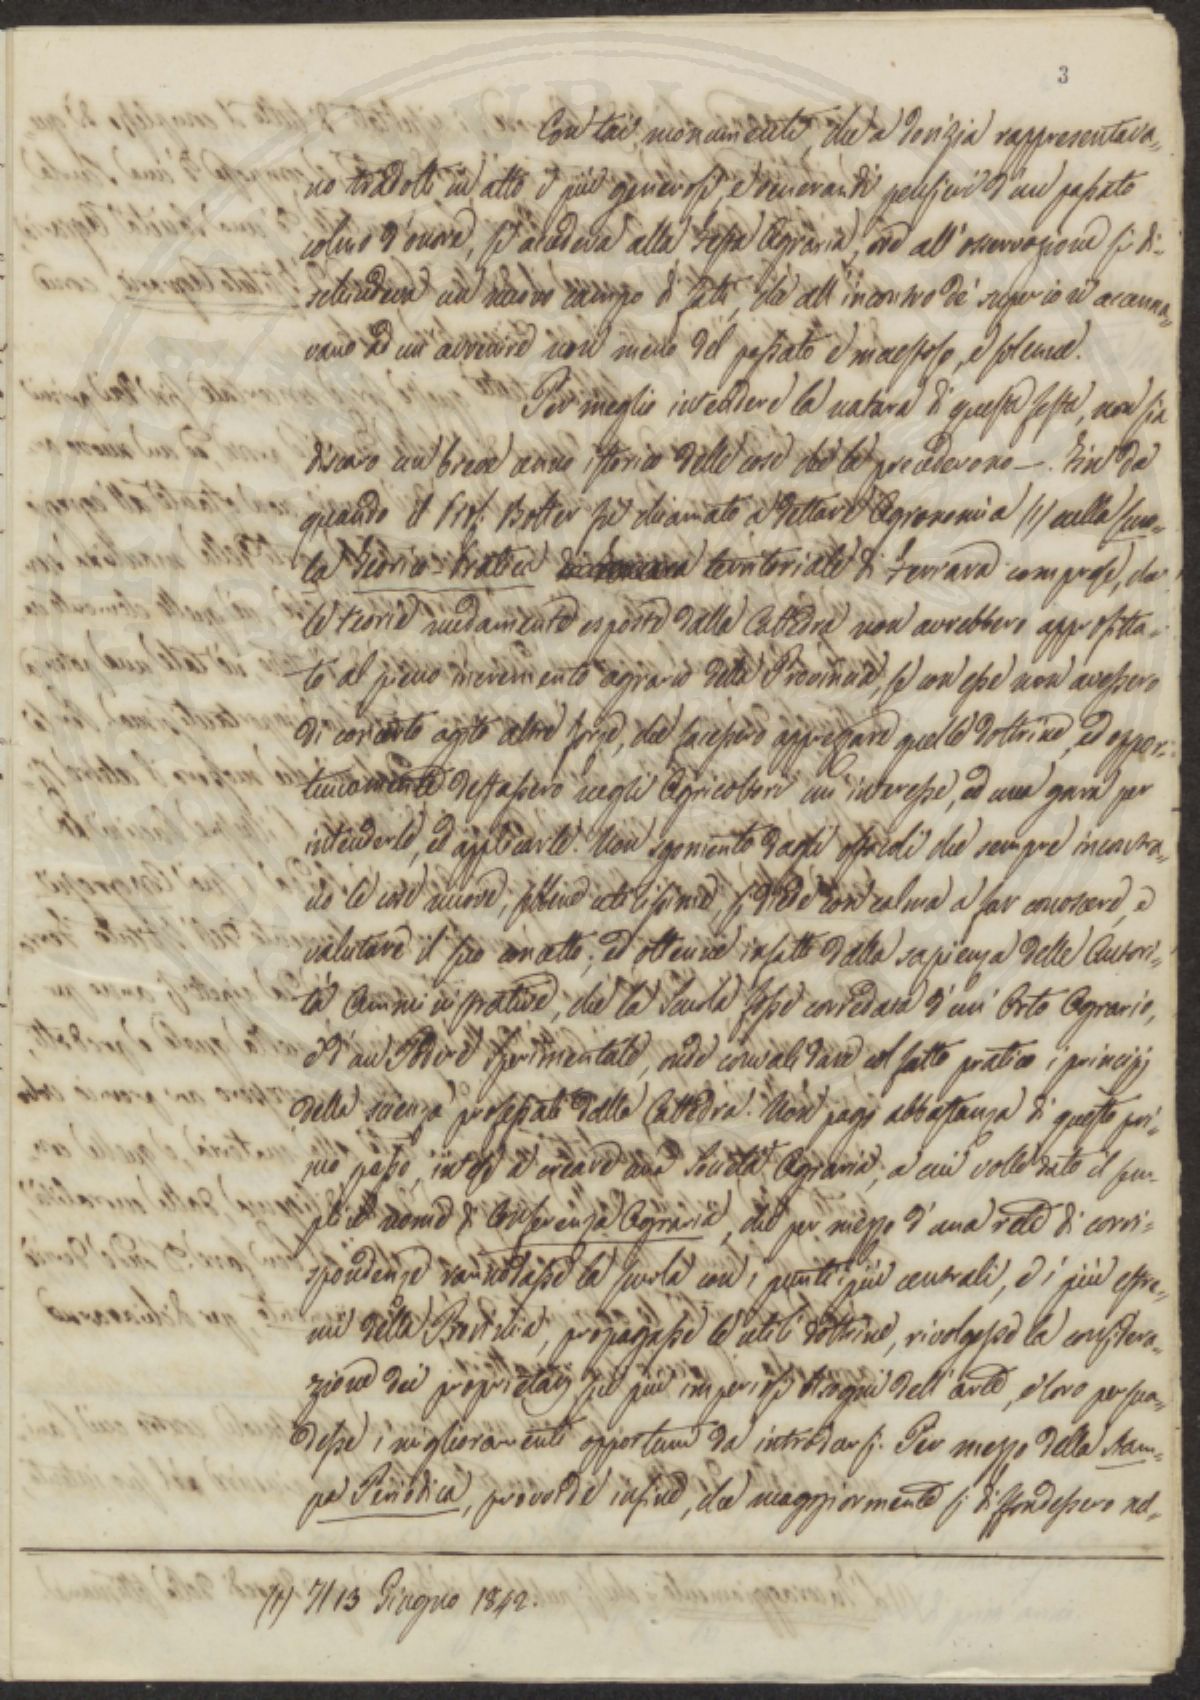 3
Con tai monumenti, che a dovizia rappresentava-
no tradotti in atto i più generosi, e venerandi pensieri d'un passato
colmo d'onore, si accedeva alla Festa Agraria, ove all'osservazione si di-
schiudeva un nuovo campo di fatti, che all'incontro de' superiori accenna-
vano ad un avvenire non meno del passato e maestoso, e solenne.
Per meglio intendere la natura di questa festa, non sia
discaro un breve cenno istorico delle cose che la precedevono —. Fin da
quando il Prof. Botter fu chiamato a dettare Agronomia (1) nella Scuo-
la Teorico-Pratica territoriale di Ferrara comprese, che
le teorie nudamente esposte dalla Cattedra non avrebbero approfitta-
to al pieno incremento agrario della Provincia, se con esse non avessero
di concerto agito altre forze, che facessero apprezzare quelle dottrine, ed oppor-
tunamente destassero negli Agricoltori un interesse, ed una gara per
intenderle, ed applicarle. Non sgomento dagli ostacoli che sempre incontra-
no le cose nuove, sebbene utilissime, si diede con calma a far conoscere, e
valutare il suo concetto; ed ottenne infatti dalla sapienza delle Autori-
tà Amministrative, che la Scuola fosse corredata d'un Orto Agrario,
e d'un Podere Sperimentale, onde convalidare col fatto pratico i principj
della scienza professati dalla Cattedra. Non pago abbastanza di questo pri-
mo passo, intese a creare una Società Agraria, a cui volle dato il sem-
plice nome di Conferenza Agraria, che per mezzo d'una rete di corri-
spondenze rannodasse la scuola con i punti i più centrali, e i più estre-
mi della Provincia, propagasse le utili dottrine, rivolgesse la considera-
zione dei proprietarj sui più imperiosi bisogni dell'arte, e loro persua-
desse i miglioramenti opportuni da introdursi. Per mezzo della Stam-
pa Periodica, provvide infine, che maggiormente si diffondessero nel-
(1) Il 13 Giugno 1842.